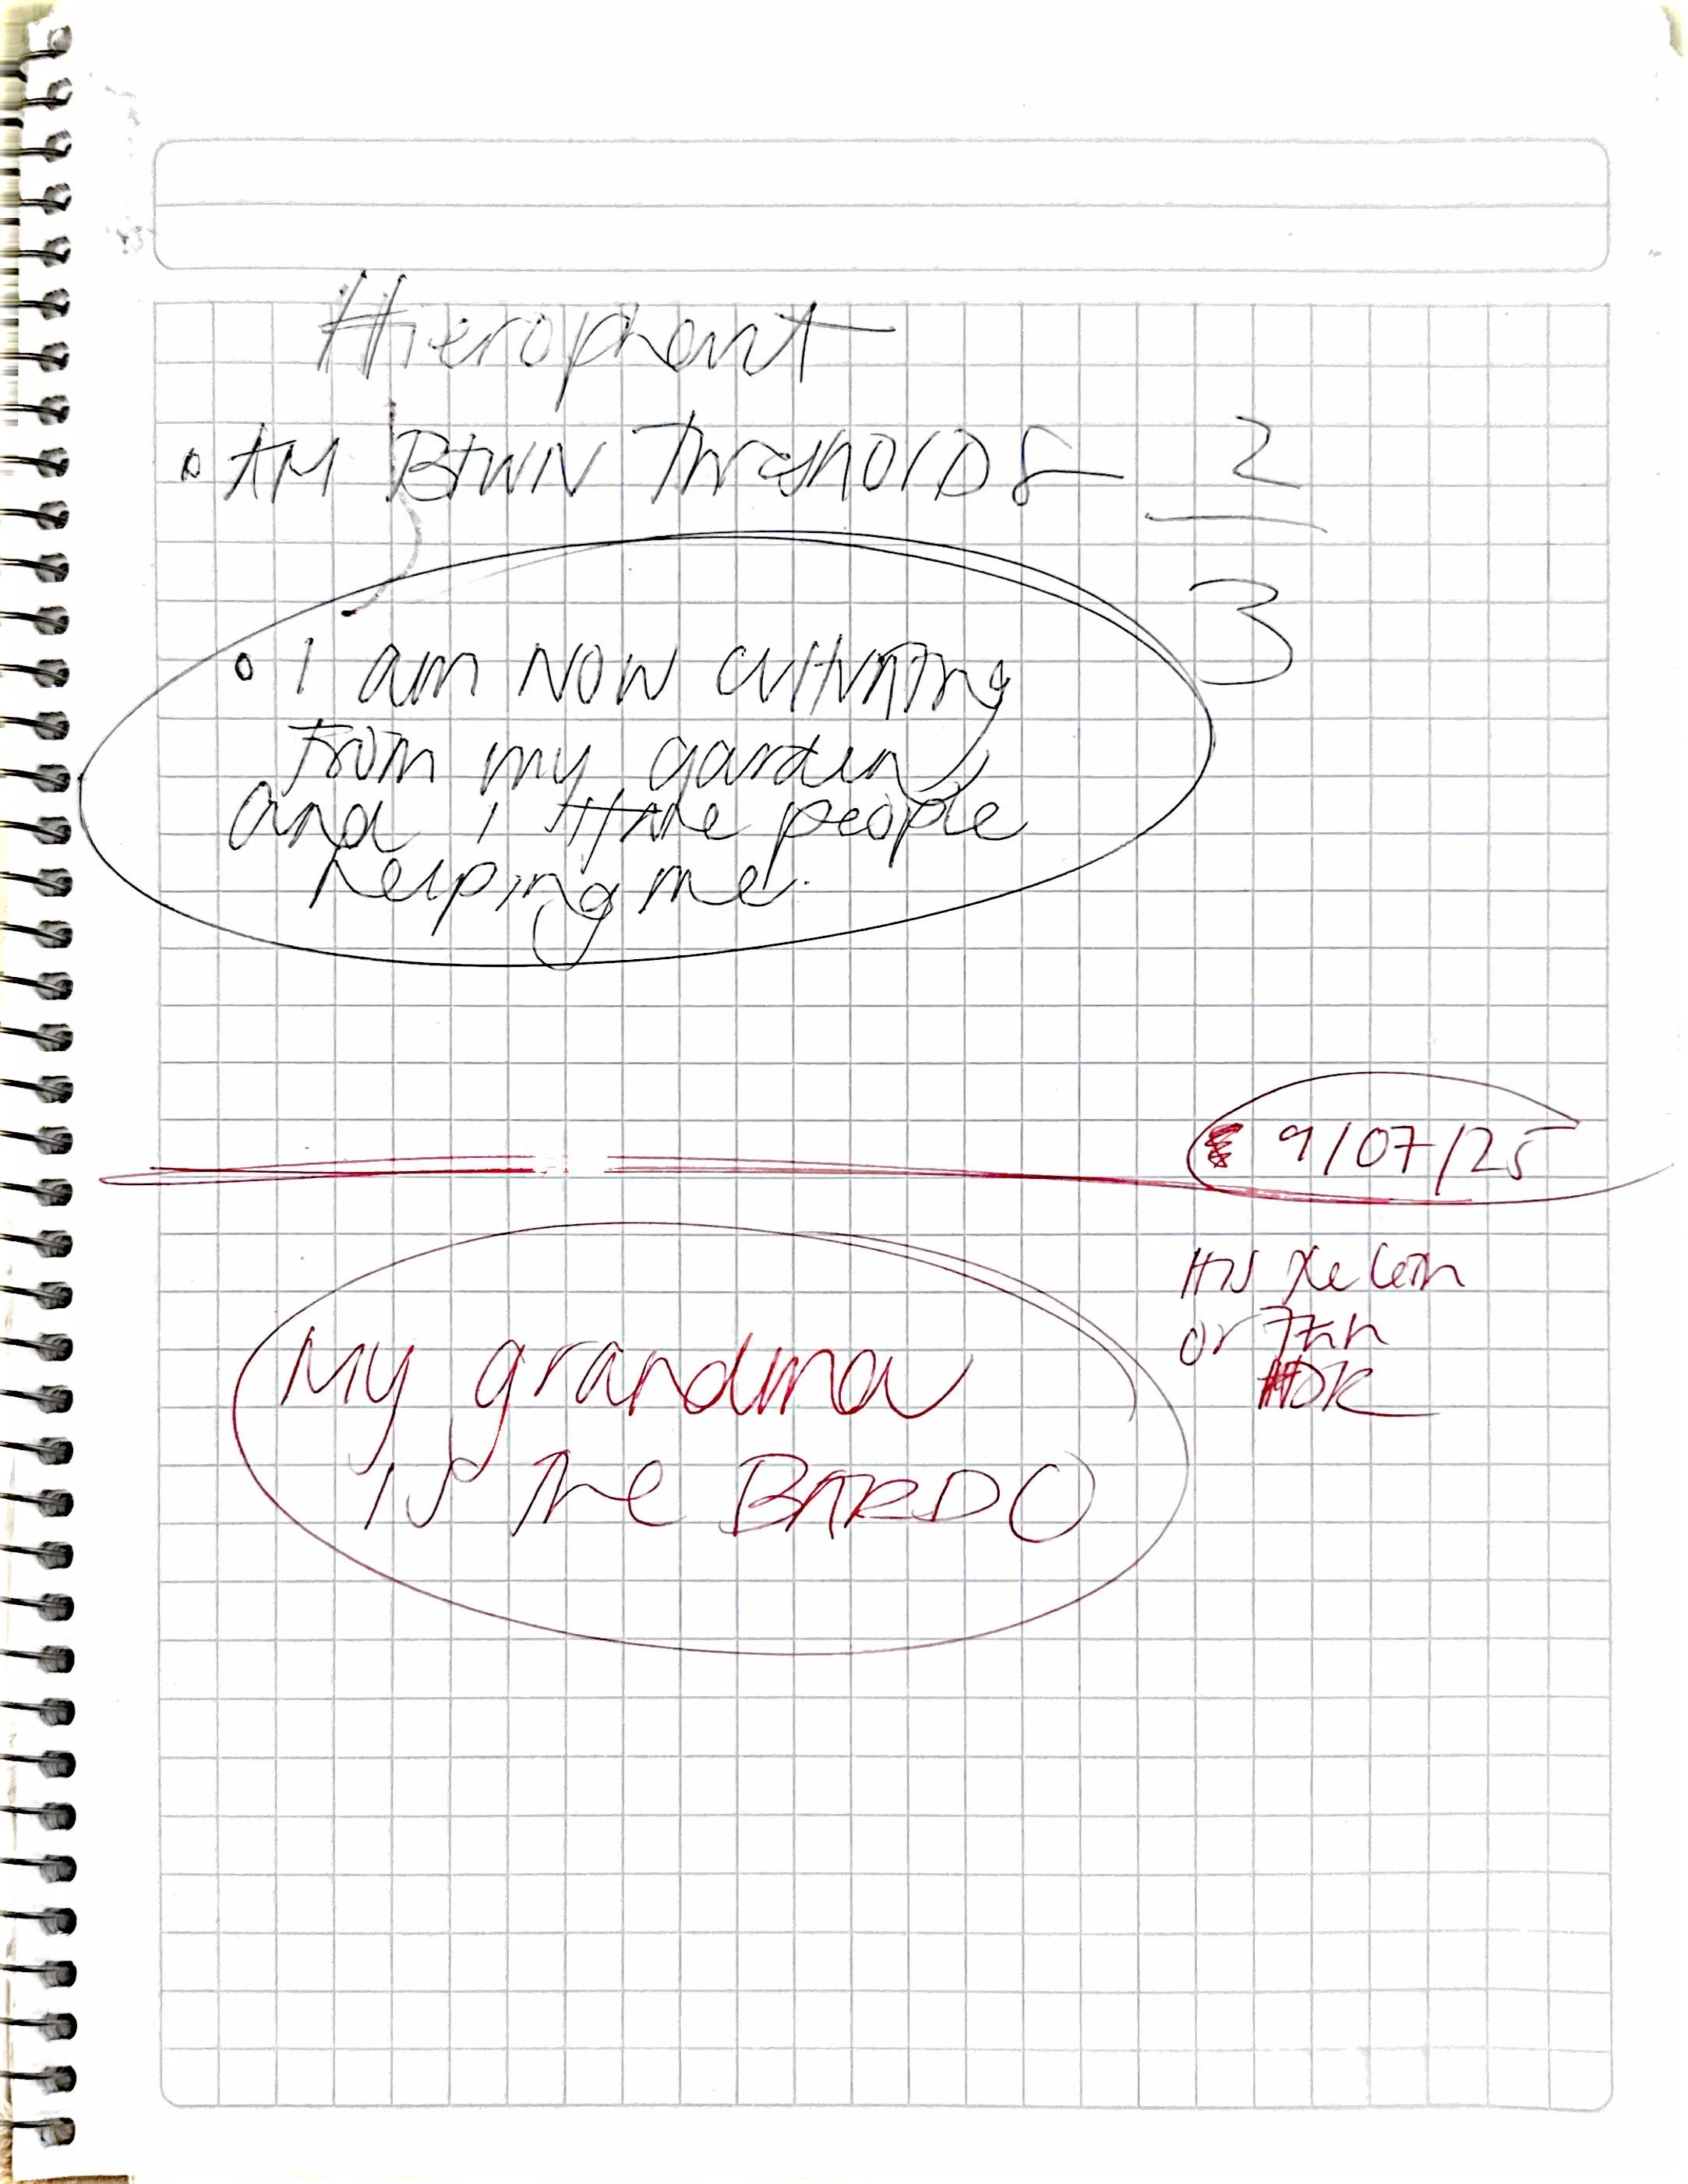 Hierophant
• AM BTWN ThresholDS 2
3
• I am NOW cultivating
from my garden,
and i HAVE people
helping me.
9/07/25
or
My grandma
is the BARDO